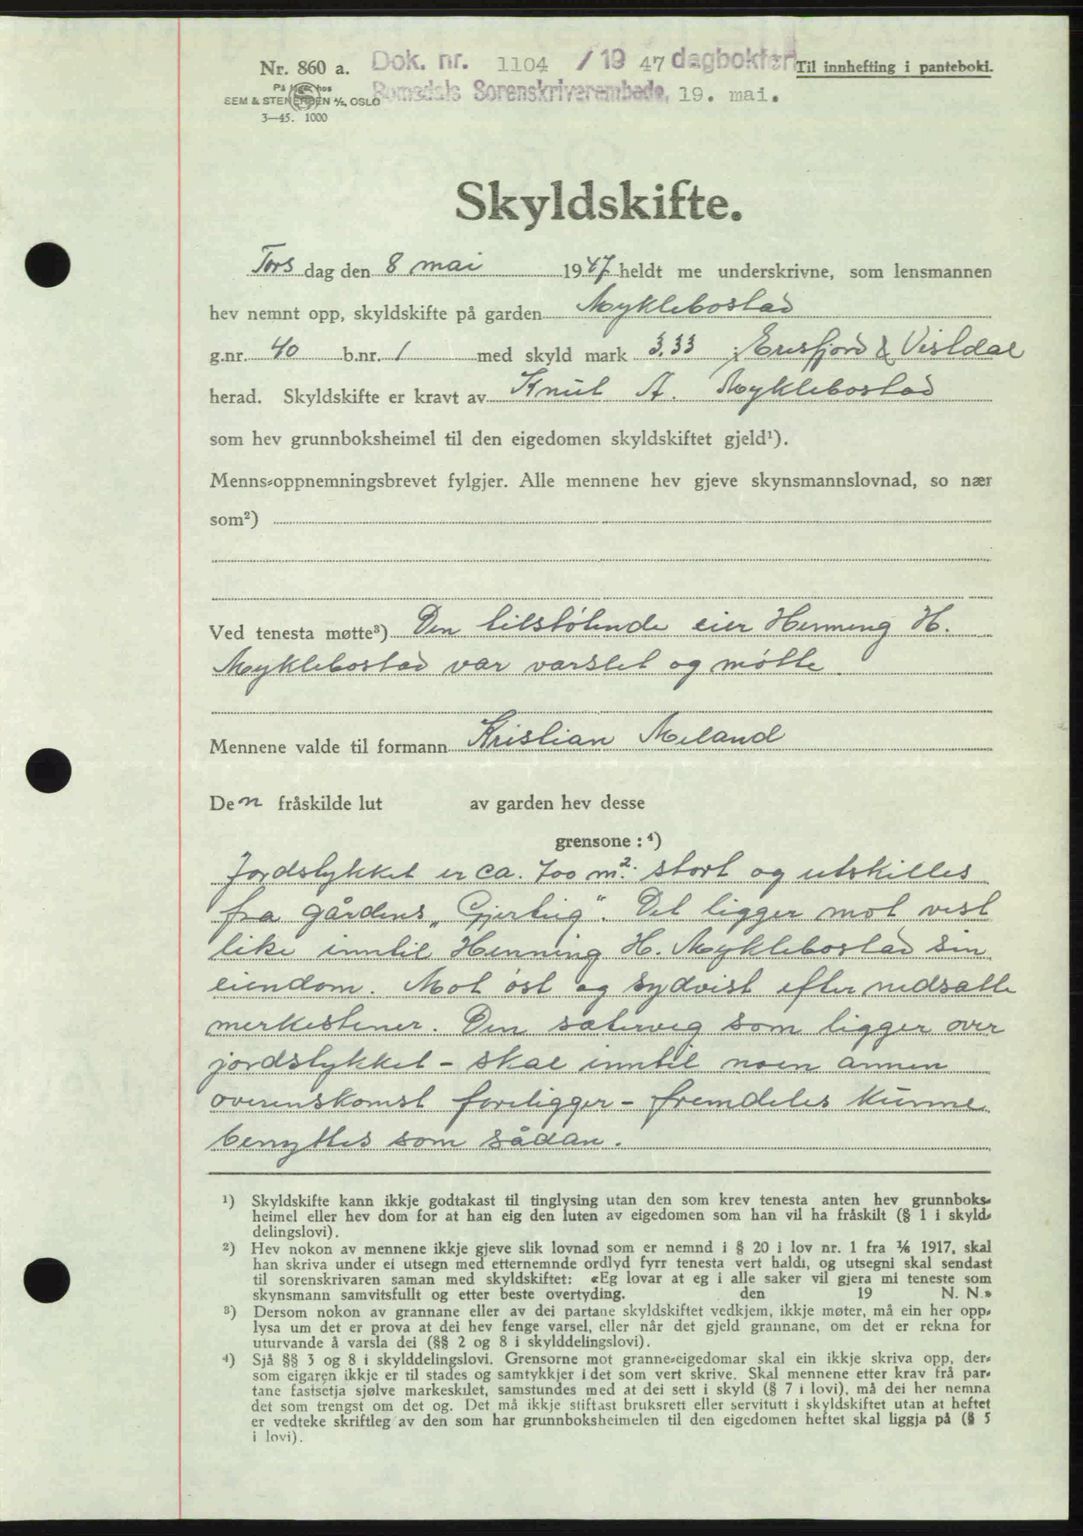 Nr. 860 a.
På lager hos
SEM & STENERSEN A/S, OSLO
3—45. 1000
Dok. nr. 1104 / 19 47 dagboken
Romsdals Sorenskriverembede, 19. mai.
Til innhefting i panteboki.
Skyldskifte.
Tors dag den 8 mai 1947 heldt me underskrivne, som lensmannen
hev nemnt opp, skyldskifte på garden Myklebostad
g.nr. 40 b.nr. 1 med skyld mark 3.33 i Eresfjord & Vistdal
herad. Skyldskifte er kravt av Knut A. Myklebostad
som hev grunnboksheimel til den eigedomen skyldskiftet gjeld¹).
Menns-oppnemningsbrevet fylgjer. Alle mennene hev gjeve skynsmannslovnad, so nær
som²)
Ved tenesta møtte³) Den tilstøtende eier Henning H.
Myklebostad var varslet og møtte.
Mennene valde til formann Kristian Meland
Den fråskilde lut av garden hev desse
grensone : ⁴)
Jordstykket er ca. 700 m². stort og utskilles
fra gårdens „Gjerteig". Det ligger mot vest
like inntil Henning H. Myklebostad sin
eiendom. Mot øst og sydvist efter nedsatte
merkestener. Den seterveg som ligger over
jordstykket – skal inntil noen annen
overenskomst foreligger – fremdeles kunne
benyttes som sådan.
¹) Skyldskifte kann ikkje godtakast til tinglysing utan den som krev tenesta anten hev grunnboks-
heimel eller hev dom for at han eig den luten av eigedomen som han vil ha fråskilt (§ 1 i skyld-
delingslovi).
²) Hev nokon av mennene ikkje gjeve slik lovnad som er nemnd i § 20 i lov nr. 1 fra 1/6 1917, skal
han skriva under ei utsegn med etternemnde ordlyd fyrr tenesta vert haldi, og utsegni skal sendast
til sorenskrivaren saman med skyldskiftet: «Eg lovar at eg i alle saker vil gjera mi teneste som
skynsmann samvitsfullt og etter beste overtyding. den 19 N. N.»
³) Dersom nokon av grannane eller av dei partane skyldskiftet vedkjem, ikkje møter, må ein her opp-
lysa um det er prova at dei hev fenge varsel, eller når det gjeld grannane, om det er rekna for
uturvande å varsla dei (§§ 2 og 8 i skylddelingslovi).
⁴) Sjå §§ 3 og 8 i skylddelingslovi. Grensorne mot granne-eigedomar skal ein ikkje skriva opp, der-
som eigaren ikkje er til stades og samtykkjer i det som vert skrive. Skal mennene etter krav frå par-
tane fastsetja sjølve markeskilet, samstundes med at dei sett i skyld (§ 7 i lovi), må dei her nemna
det som trengst om det og. Det må ikkje stiftast bruksrett eller servitutt i skyldskiftet utan at heftet
er vedteke skriftleg av den som har grunnboksheimelen til den eigedomen heftet skal liggja på (§ 5
i lovi).